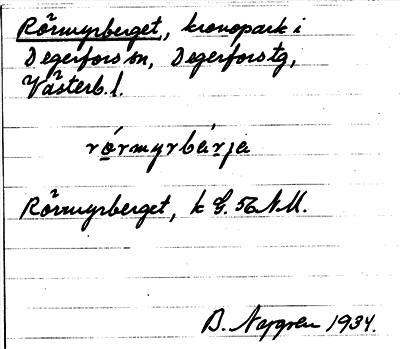 Rörmyrberget, kronopark i
Degerfors sn, Degerfors tg,
Västerb. l.
rórmyrbárja
Rörmyrberget, k G. 56 NM.
B. 1934.